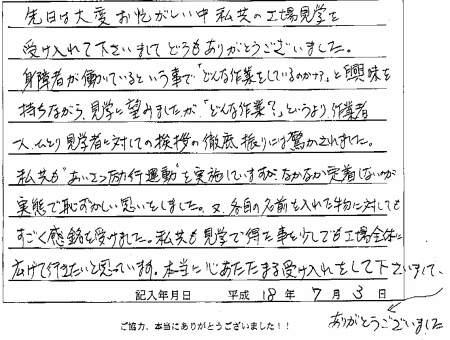 先日は大変お忙がしい中私共の工場見学を
受け入れて下さいましてどうもありがとうございました。
身障者が働いているという事で「どんな作業をしているのか?」と興味を
持ちながら、見学に望みましたが、「どんな作業?」というより、作業者
一人、ひとり見学者に対しての挨拶の徹底振りには驚かされました。
私共も"あいさつ励行運動"を実施していますが、なかなか定着しないのが
実態で恥ずかしい思いをしました。又、各自の名前を入れた物に対しても
すごく感銘を受けました。私共も見学で得た事を少しでも工場全体に
広げて行きたいと思っています。本当に心あたたまる受け入れをして下さいまして、
ありがとうございました
記入年月日 平成 18 年 7 月 3 日
ご協力、本当にありがとうございました!!